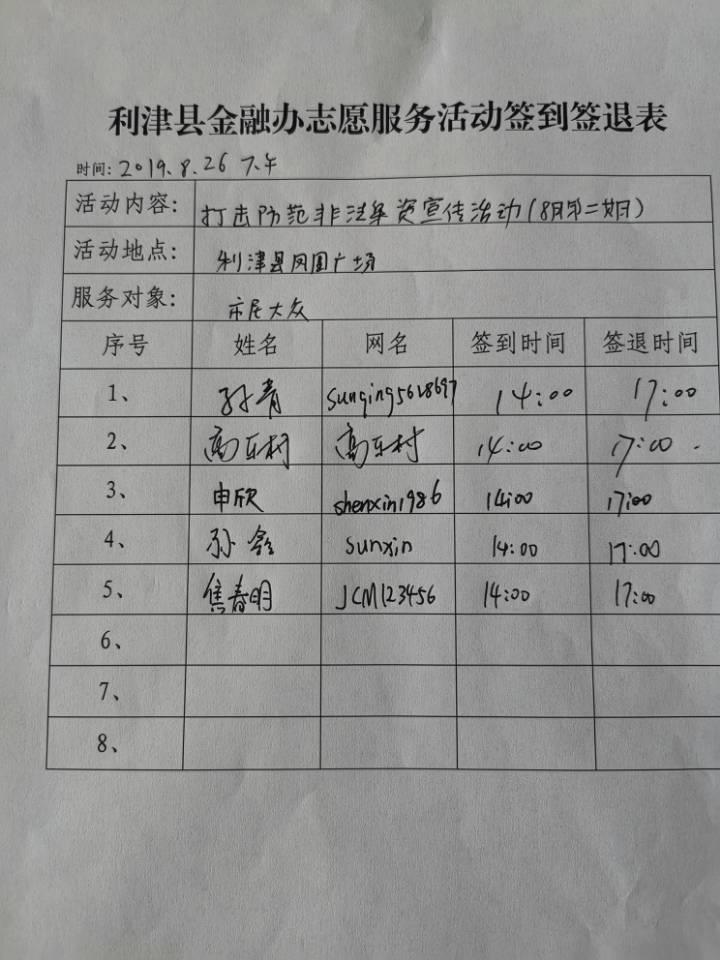 利津县金融办志愿服务活动签到签退表
时间: 2019.8.26 下午
活动内容: 打击防范非法集资宣传活动(8月第二期)
活动地点: 利津县凤凰广场
服务对象: 市民大众
序号 姓名 网名 签到时间 签退时间
1、 孙青 14:00 17:00
2、 高乐村 高乐村 14:00 17:00
3、 申欣 shenxin1986 14:00 17:00
4、 孙鑫 sunxin 14:00 17:00
5、 焦春明 JCM123456 14:00 17:00
6、
7、
8、